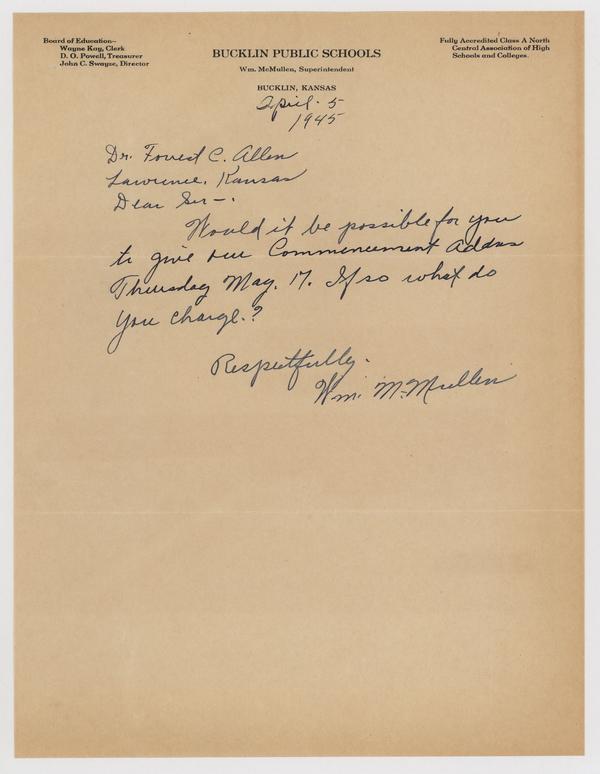 Board of Education—
Wayne Kay, Clerk
D. O. Powell, Treasurer
John C. Swayze, Director
BUCKLIN PUBLIC SCHOOLS
Wm. McMullen, Superintendent
BUCKLIN, KANSAS
Fully Accredited Class A North
Central Association of High
Schools and Colleges.
April. 5
1945
Dr. Forrest C. Allen
Lawrence, Kansas
Dear Sir—.
Would it be possible for you
to give our Commencement Address
Thursday May. 17. If so what do
you charge.?
Respectfully.
Wm. McMullen